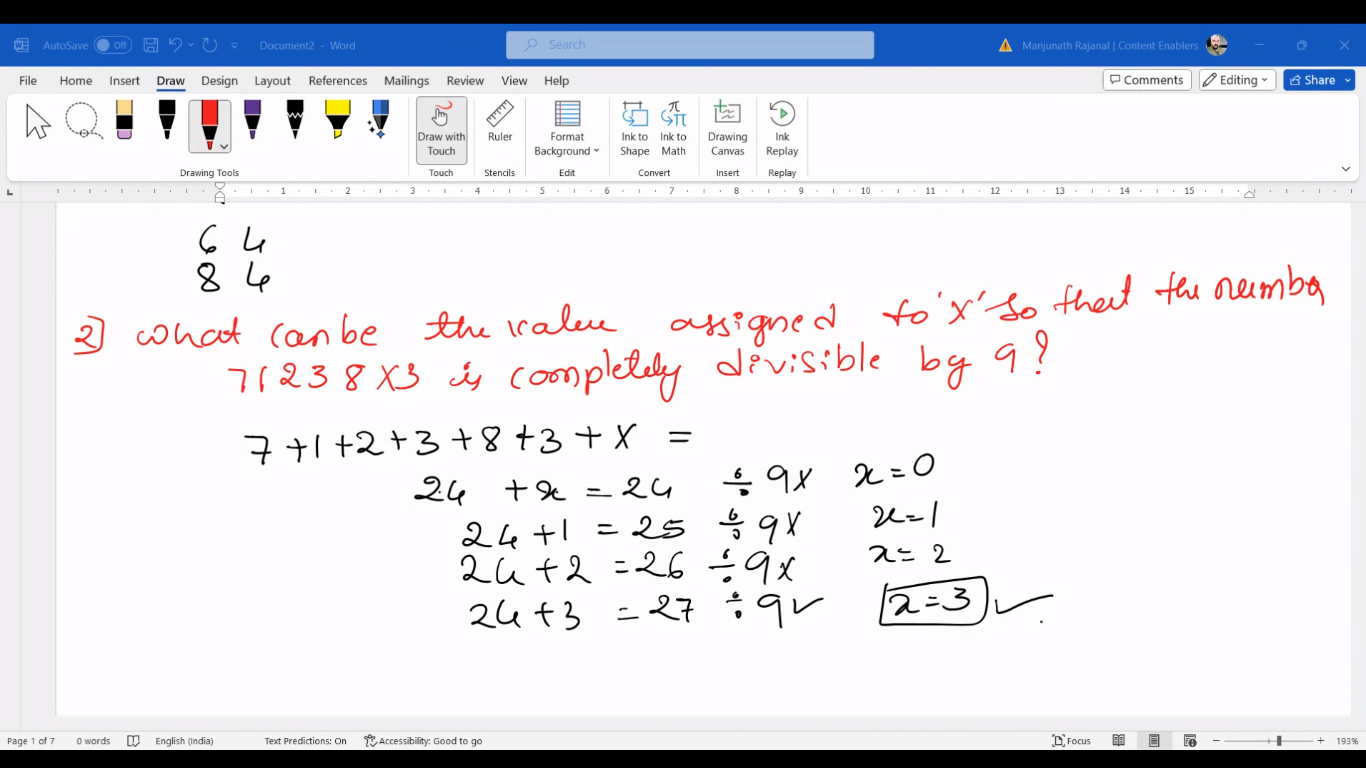 AutoSave Off Document2 - Word Search Manjunath Rajanal | Content Enablers
File Home Insert Draw Design Layout References Mailings Review View Help Comments Editing Share
Draw with Touch Ruler Format Background Ink to Shape Ink to Math Drawing Canvas Ink Replay
Drawing Tools Touch Stencils Edit Convert Insert Replay
1 2 3 4 5 6 7 8 9 10 11 12 13 14 15
6 4
8 4
2] What can be the value assigned to 'x' so that the number
71238X3 is completely divisible by 9?
7+1+2+3+8+3+X =
24 +x = 24 ÷ 9X x=0
24+1 = 25 ÷ 9X x=1
24+2 =26 ÷ 9X x=2
24+3 =27 ÷ 9✓ x=3 ✓
Page 1 of 7 0 words English (India) Text Predictions: On Accessibility: Good to go Focus 193%